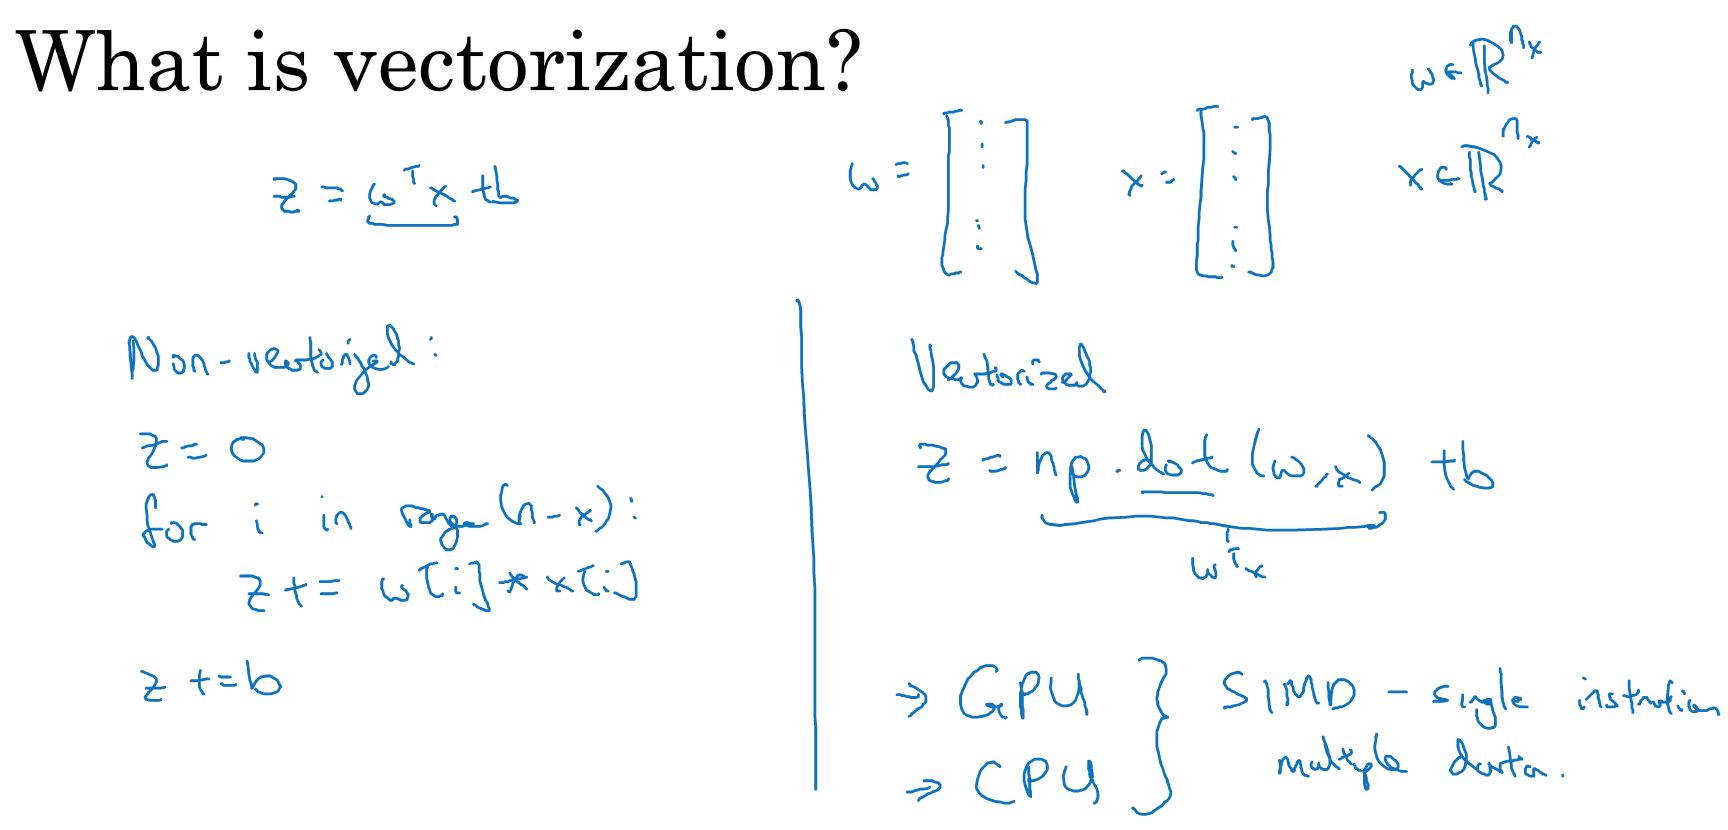 What is vectorization?
z = wᵀx + b
w = [⋮] x = [⋮] w ∈ ℝⁿˣ
x ∈ ℝⁿˣ
Non-vectorized:
z = 0
for i in range(n-x):
z += w[i] * x[i]
z += b
Vectorized
z = np.dot(w,x) + b
wᵀx
→ GPU } SIMD - single instruction
→ CPU } multiple data.